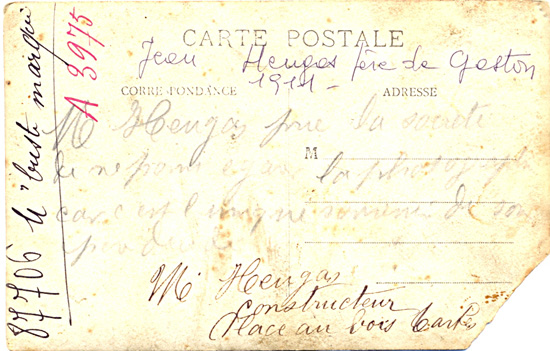 CARTE POSTALE
Jean Heugas père de Gaston
1914 -
CORRESPONDANCE ADRESSE
M Heugas prie la société
de ne pas la photographie
car c'est l'unique souvenir de son
M
Mr Heugas
constructeur
Place au bois
87706 "buste marqui
A 3975